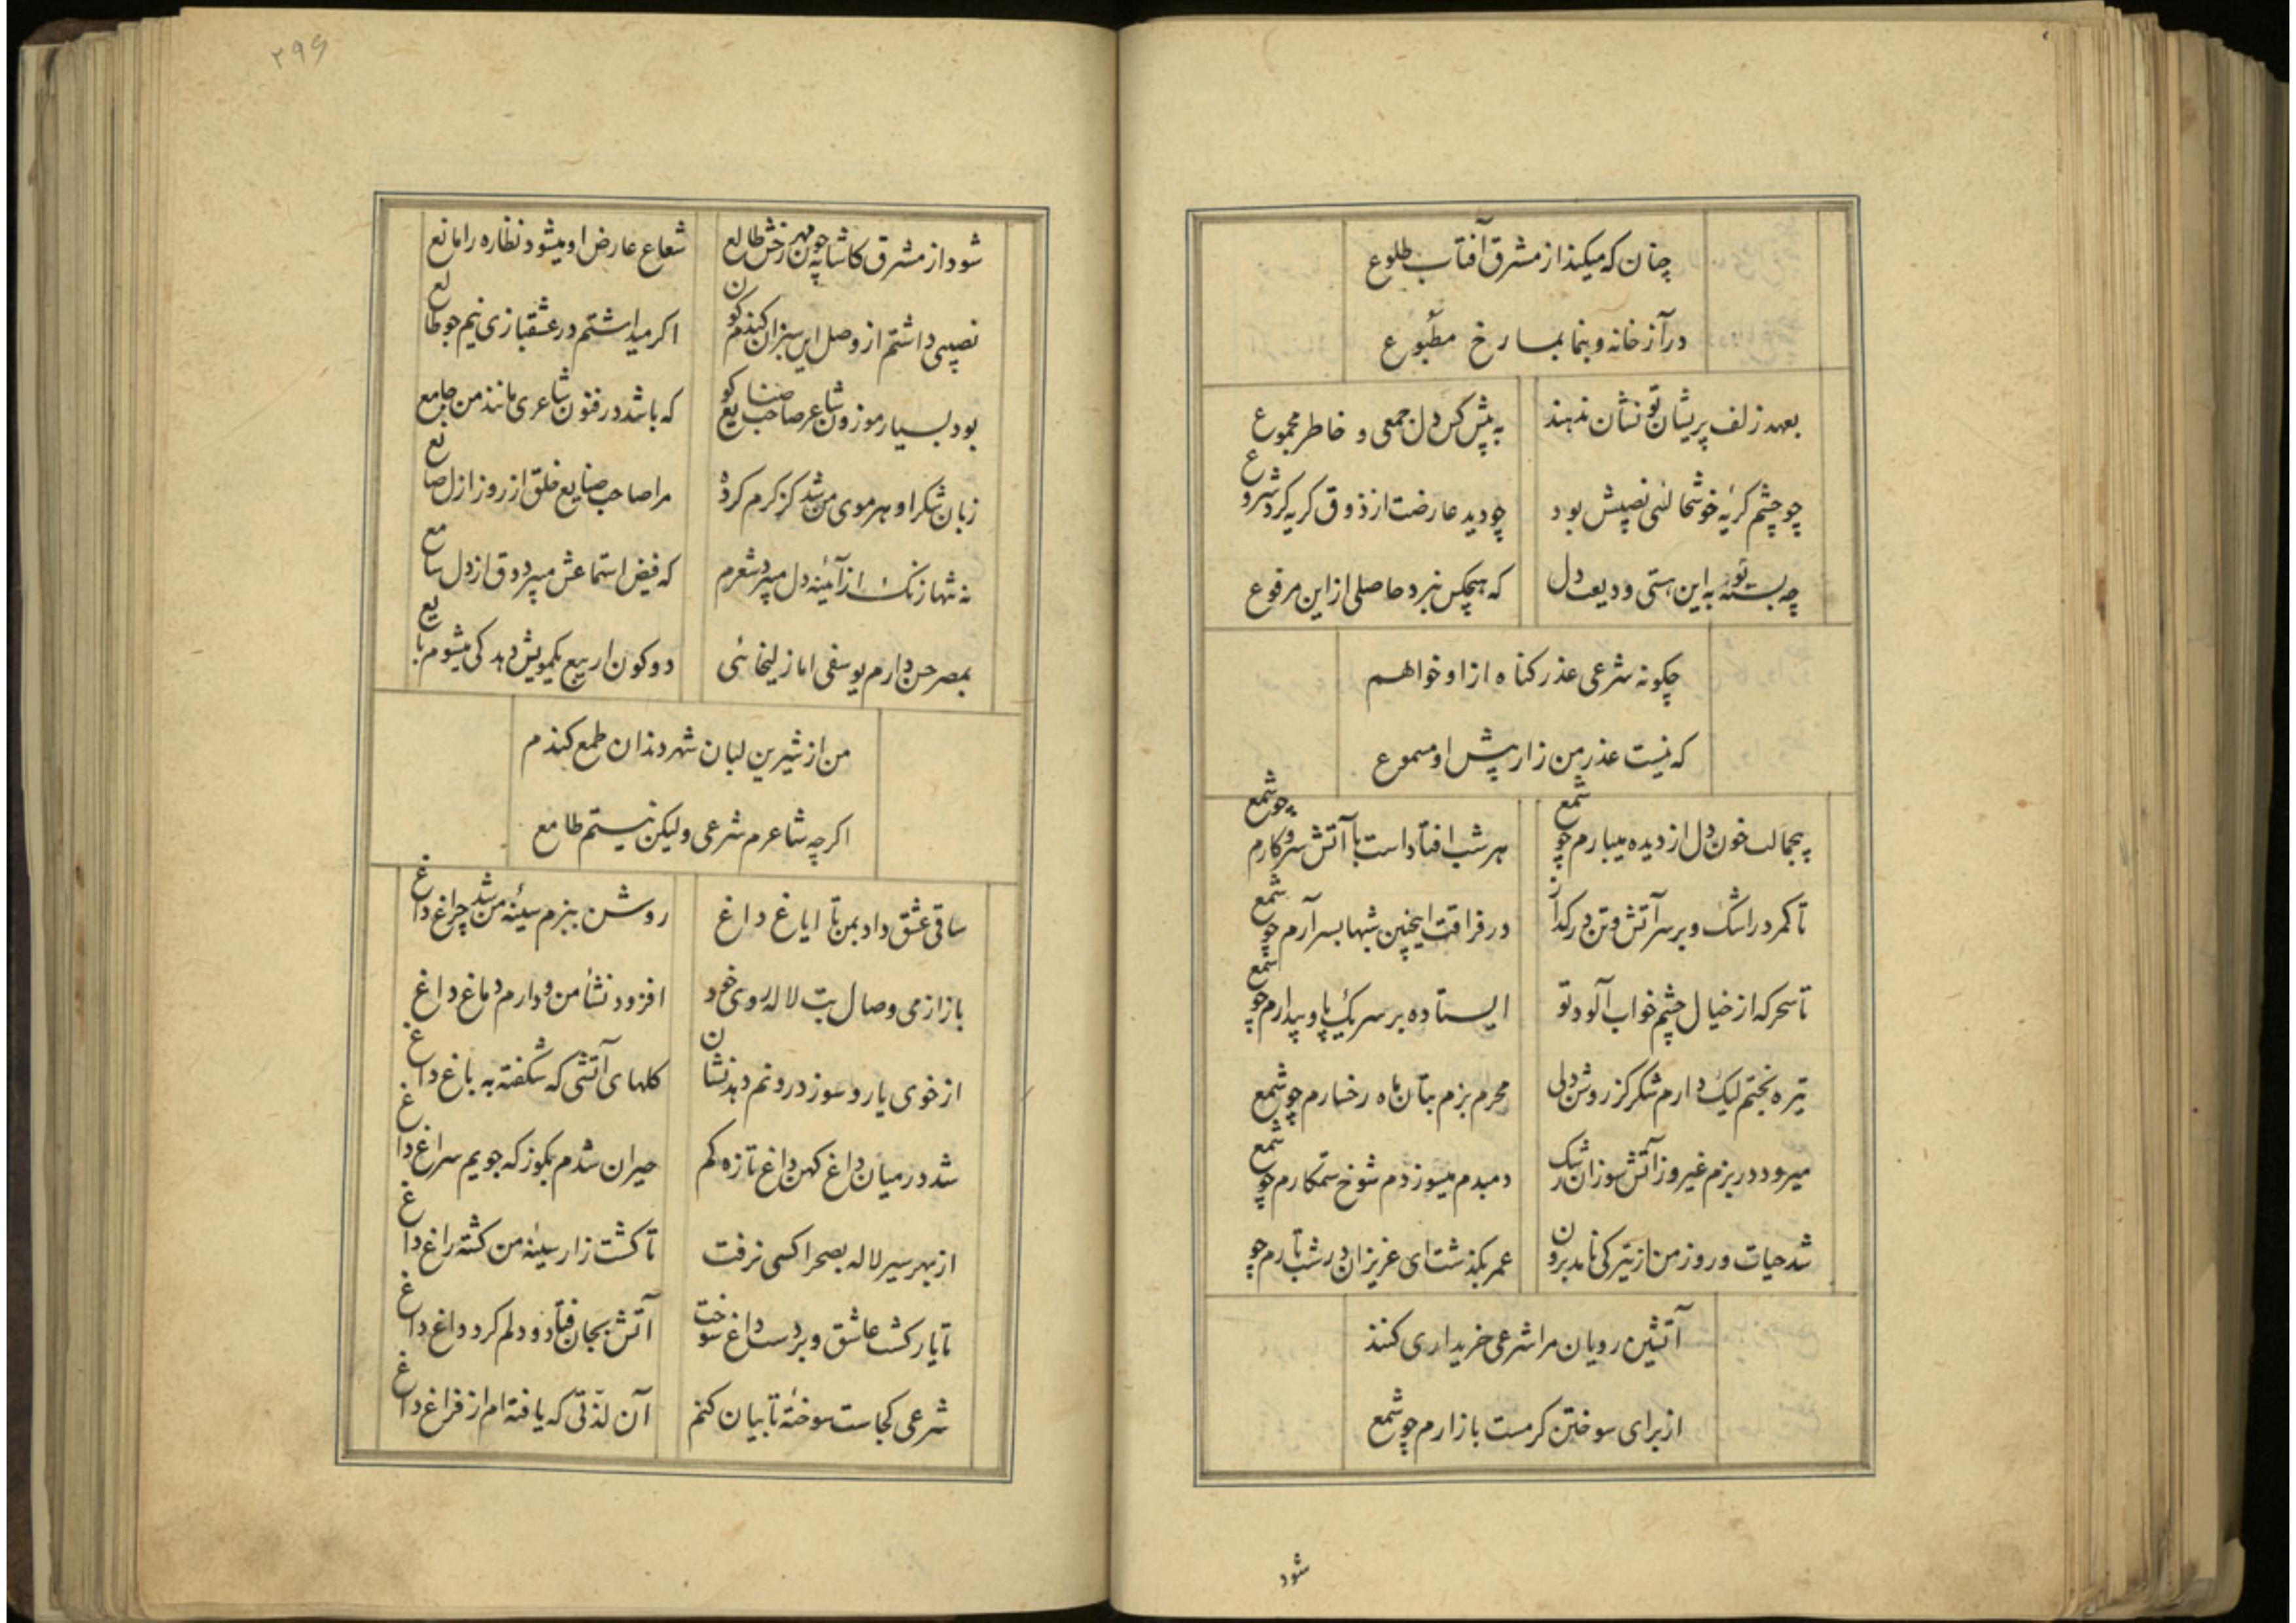 چنان که میکند از مشرق آفتاب طلوع
درآ ز خانه و بنما بما رخ مطبوع
بعهد زلف پریشان تو نشان ندهند
به پیش کس دل جمعی و خاطر مجموع
چو چشم کریهٔ خوشحالئی نصیبش بود
چو دید عارضت از ذوق کریه کرد شروع
چه بستهٔ تو به این هستی ودیعت دل
که هیچکس نبرد حاصلی از این مرفوع
چکونه شرعی عذر کناه از او خواهم
که نیست عذر من زار پیش او مسموع
بیجمالت خون دل از دیده میبارم چو شمع
هر شب افتاد است با آتش سر و کارم چو شمع
تا کمر در اشک و بر سر آتش و تن در کداز
در فراقت اینچنین شبها بسر آرم چو شمع
تا سحر که از خیال چشم خواب آلود تو
ایستاده بر سر یک پا و بیدارم چو شمع
تیره بختم لیک دارم شکر کز روشن دلی
محرم بزم بتان ماه رخسارم چو شمع
میرود در بزم غیر و ز آتش سوزان رشک
دمبدم میسوزدم شوخ ستمکارم چو شمع
شد حیات و روز من از تیرکی نامد برون
عمر بکذشت ای عزیزان در شب تارم چو
آتشین رویان مرا شرعی خریداری کنند
از برای سوختن کرمست بازارم چو شمع
شود
۲۹۶
شود از مشرق کاشانه چون مهر رخش طالع
شعاع عارض او میشود نظاره را مانع
نصیبی داشتم از وصل این سبزان کندم کون
اکر میداشتم در عشقبازی نیم جو طالع
بود بسیار موزون شاعر صاحب صنایع کو
که باشد در فنون شاعری مانند من جامع
زبان شکر او هر موی من شد کز کرم کرده
مرا صاحب صنایع خلق از روز ازل صانع
نه تنها زنک از آئینه دل میبرد شعرم
که فیض استماعش میبرد دق از دل سامع
بمصر حسن دارم یوسفی اما زلیخائی
دو کون ار بیع یکمویش دهد کی میشوم بایع
من از شیرین لبان شهر دندان طمع کندم
اکر چه شاعرم شرعی ولیکن نیستم طامع
ساقی عشق داد بمن تا ایاغ داغ
روشن ببزم سینهٔ من شد چراغ داغ
باز از می وصال بت لاله روی خود
افزود نشأ من و دارم دماغ داغ
از خوی یار و سوز درونم دهد نشان
کلهای آتشی که شکفته به باغ داغ
شد در میان داغ کهن داغ تازه کم
حیران شدم بکو ز که جویم سراغ داغ
از بهر سیر لاله بصحرا کسی نرفت
تا کشت زار سینهٔ من کشته راغ داغ
تا یار کشت عاشق و بر دست داغ سوخت
آتش بجان فتاد و دلم کرد داغ داغ
شرعی کجاست سوختهٔ تا بیان کنم
آن لذتی که یافته ام از فراغ داغ